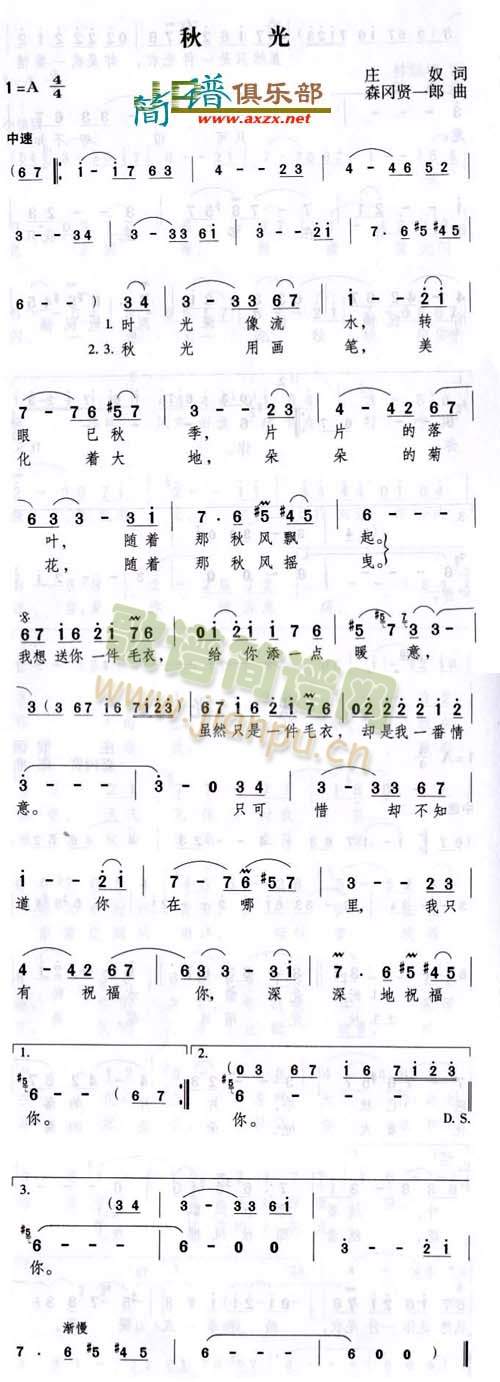 秋 光
1=A 4/4
庄 奴 词
森冈贤一郎 曲
简谱俱乐部
www.axzx.net
中速
(6 7 ‖: i - i 7 6 3 | 4 - - 2 3 | 4 - 4 6 5 2 |
3 - - 3 | 3 - 3 3 6 i | 3 - - 2 i | 7 . 6 #5 #4 5 |
6 - - ) 3 4 | 3 - 3 3 6 7 | i - - 2 i |
1. 时 光 像 流 水, 转
2. 3. 秋 光 用 画 笔, 美
7 - 7 6 #5 7 | 3 - - 2 3 | 4 - 4 2 6 7 |
眼 已 秋 季, 片 片 的 落
化 着 大 地, 朵 朵 的 菊
6 3 3 - 3 i | 7 . 6 #5 #4 5 | 6 - - - |
叶, 随 着 那 秋 风 飘 起。
花, 随 着 那 秋 风 摇 曳。
6 7 i 6 2 i 7 6 | 0 i 2 i i 7 6 | #5 7 3 3 - |
我想 送你 一件 毛衣, 给 你 添 一 点 暖 意,
3 (3 6 7 i 6 7 i 2 3) | 6 7 i 6 2 i 7 6 | 0 2 2 2 2 i 2 |
虽然 只是 一件 毛衣, 却 是 我 一 番 情
3 - - - | 3 - 0 3 4 | 3 - 3 3 6 7 |
意。 只 可 惜 却 不 知
i - - 2 i | 7 - 7 6 #5 7 | 3 - - 2 3 |
道 你 在 哪 里, 我 只
4 - 4 2 6 7 | 6 3 3 - 3 i | 7 6 #5 #4 5 |
有 祝 福 你, 深 深 地 祝 福
1. 2. (0 3 6 7 i 6 7 i 2 3
#5 6 - - (6 7 :‖ #5 6 - - - )
你。 你。 D. S.
3. (3 4 | 3 - 3 3 6 i
#5 6 - - - | 6 - 0 0 | 3 - - 2 i |
你。
渐慢
7 . 6 #5 #4 5 | 6 - - - | 6 0 0 0 ) ‖
歌谱简谱网
www.jianpu.cn